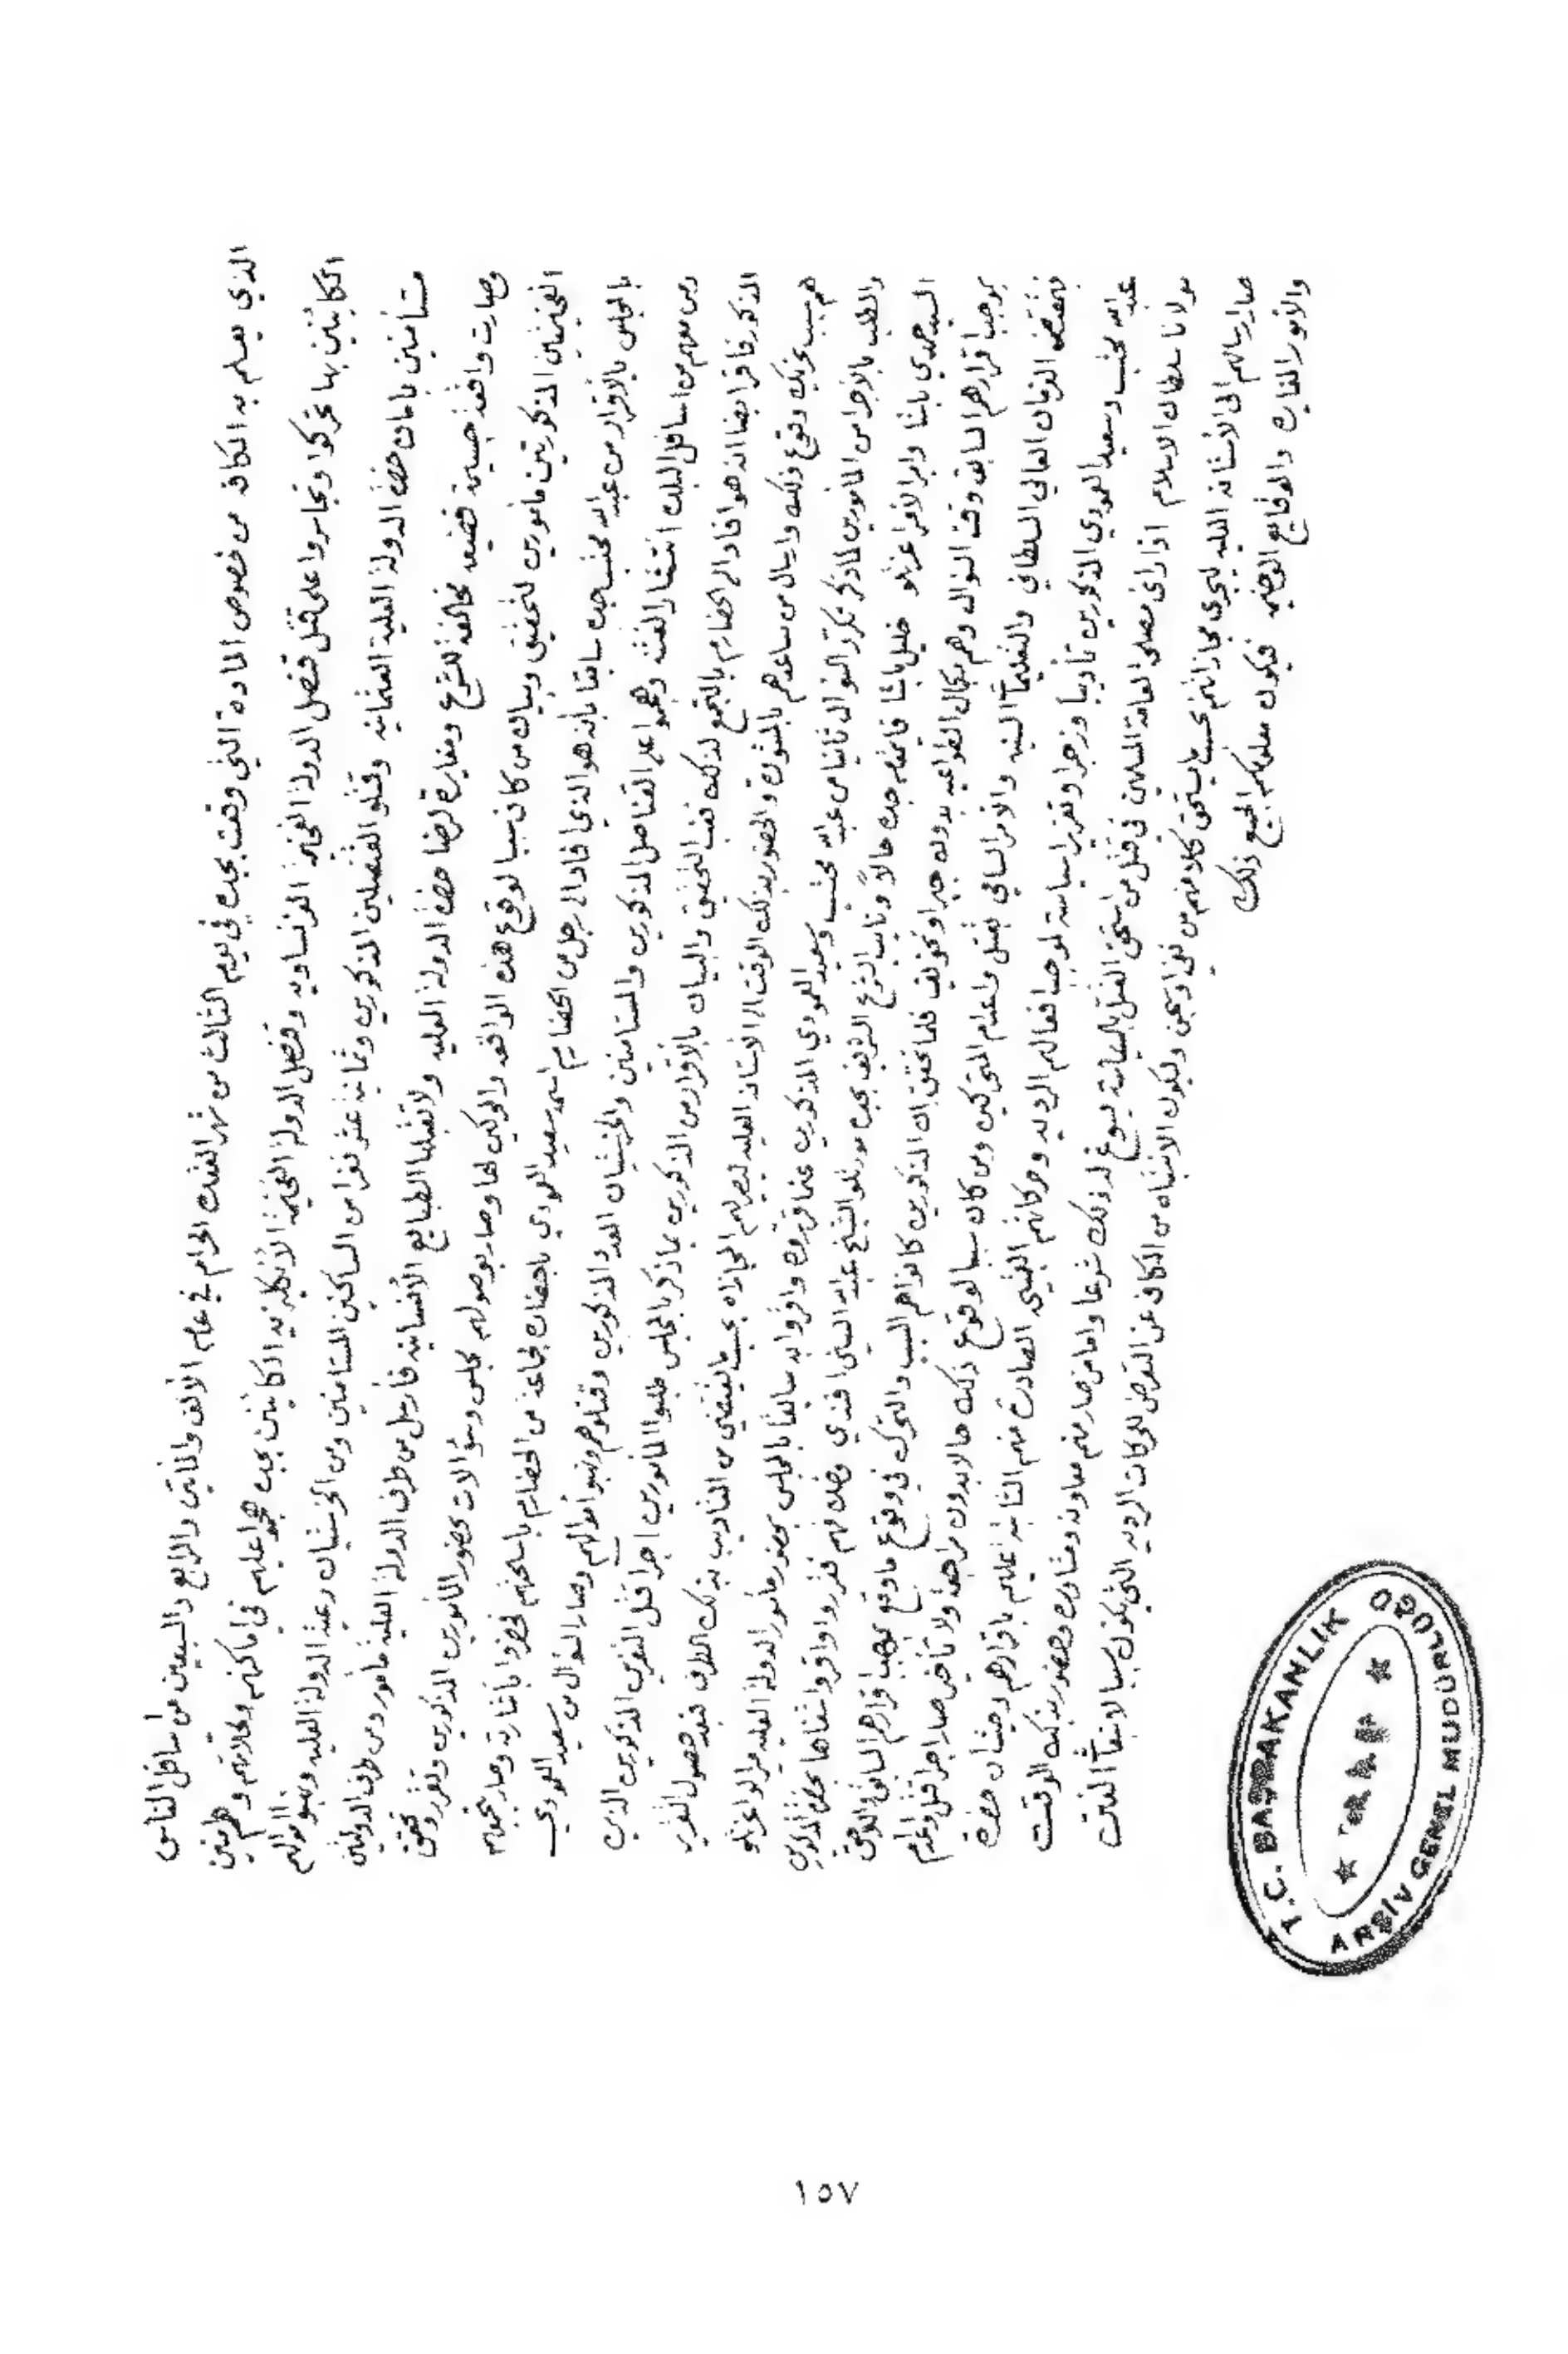 الذي يعلم به الكافه من خصوص المادة التي وقعت بجده في يوم الثالث من شهر القعدة الحرام في عام الألف والمايتين والرابع والسبعين من اسافل الناس
الكاينين بها تحركوا وتجاسروا على قتل قنصل الدولة الفخيمة الفرنساويه وقنصل الدولة الفخيمة الأنكليزيه الكاينين بجده هجموا عليهم في اماكنهم ومحلاتهم وهم
مستأمنين بامان حضرة الدولة العلية العثمانيه وقتلو القنصلين المذكورين وثمانية عشر نفرا من الساكنين المستامنين ومن الخرستيان رعية الدولة العليه ونهبو أموالهم
وصارت واقعة جسيمة فضيعه مخالفة للشرع ومغايرة لرضا حضرة الدولة العليه ولا تقبلها الطبايع الأنسانيه فأرسل من طرف الدولة العلية مأمور ومن طرف الدولتين
الفخيمتين المذكورتين مأمورين لتحقيق وبيان من كان سببا لوقوع هذه الواقعه والمحركين لها وصار بوصولهم مجلس وسؤالات بحضور المأمورين المذكورين وتقرر وتحقق
بالمجلس بالأقرار من عبدالله محتسب جده سابقا بأنه هو الذي افاد الى رجل من الحضارم اسمه سعيد العمودي باحضار جماعة من الحضارم باسلحتهم فحضروا باشارته وصار تجمعهم
ومن معهم من اسافل البلد انتشار الفتنه وهجموا على القناصل المذكورين والمستامنين والخرستيان المذكورين وقتلوهم ونهبو أموالهم وصار السؤال من سعيد العمودي
المذكور فاقر ايضا انه هو افاد الى الحضارم بالتجمع لذلك فعند التحقيق والبيان بالأقرار من المذكورين بما ذكر بالمجلس طلبوا المأمورين اجرا قتل النفرين المذكورين الذين
هم سبب تحريك وقوع ذلك وارسال من ساعدهم بالمشورة والحضور بذلك الوقت الى الاستانة العليه ليصير لهم المجازاه بحسب ما يقتضي من التأديب بذلك الطرف فبعد حصول التقرير
والطلب بالاجرا من المأمورين لما ذكر تكرر السؤال ثانيا من عبدالله محتسب وسعيد العمودي المذكورين عما قرروه واقروا به سابقا بالمجلس بحضور مأمور الدولة العليه
السيد حمدي باشا وامير الأمرا عزتلو خليل باشا قايمقام جده حالاً ونايب الشرع الشريف بجده مودتلو الشيخ عبدالله افندي فقرروا واقروا شفاها بحضرة المذكورين
بموجب اقرارهم السابق وقت السؤال وهم بكمال الطواعيه بدون جبر او تخويف فلما تحقق ان المذكورين كانوا هم السبب والتحرك في وقوع ما وقع بموجب اقرارهم السابق واللاحق
فبمقتضى الفرمان العالي السلطاني والتعليمآ السنيه والأمر السامي بقتل واعدام المتحركين ومن كان سببا لوقوع ذلك حالا بدون مراجعه ولا تأخير صار اجرا قتل واعدام
عبدالله محتسب وسعيد العمودي المذكورين تأديبا وزجرا وتعزيرا سياسة لموجب افعالهم الرديه وحركاتهم الصادرة منهم الثابتة عليهم باقرارهم وحيث ان حضرة
مولانا سلطان الاسلام اذا راى مصلحة لعامة المسلمين في قتل من استحق القتل بالسياسة يسوغ له ذلك شرعا واما من صار منهم معاونة ومشاوره وحضور بذلك الوقت
صار ارسالهم الى الأستانه العليه ليجري مجازاتهم بحسب ما يستحق كلا منهم من نفي او سجن وليكون الانتباه من الكافة عن التعرض للحركات الرديه التي تكون سببا لانبعاث الفتن
والأمور المغايره والوقايع الوخيمه فيكون معلومكم الجميع ذلك
T.C. BAŞBAKANLIK
ARŞİV GENEL MÜDÜRLÜĞÜ
١٥٧